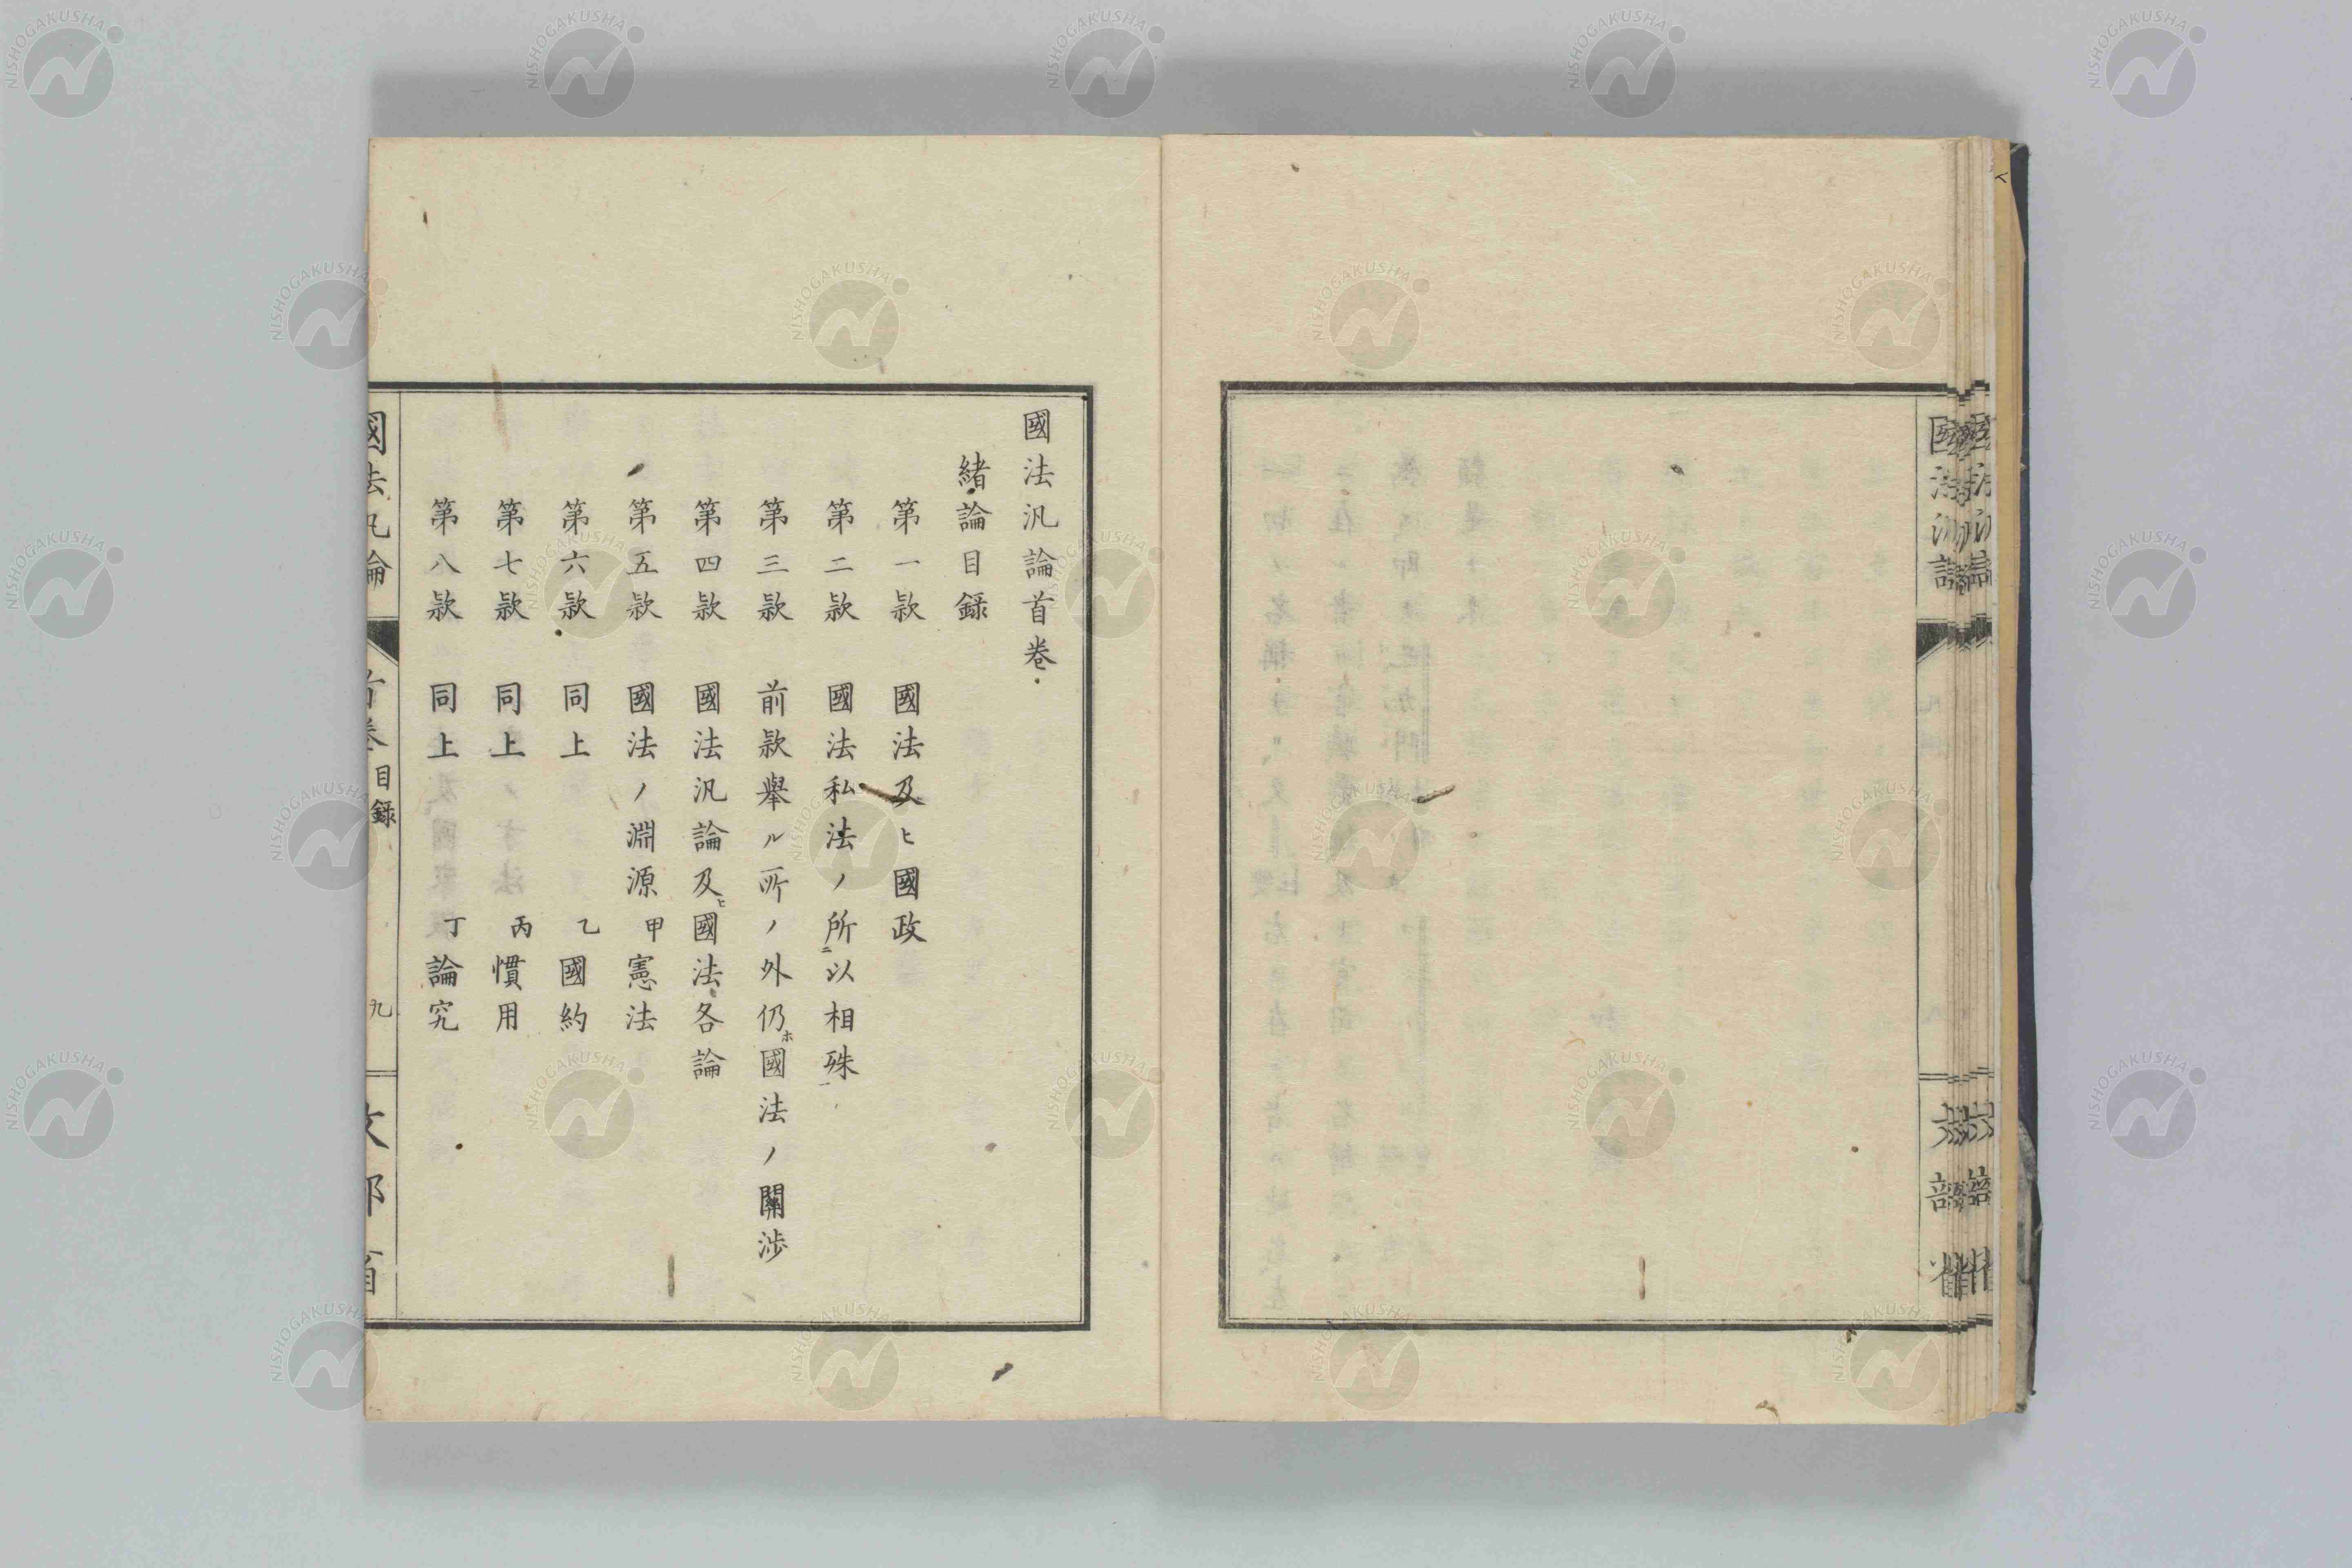 國法汎論
文部省
國法汎論首卷
緒論目録
第一款 國法及ヒ國政
第二款 國法私法ノ所ニ以相殊一
第三款 前款舉ル所ノ外仍ホ國法ノ關渉
第四款 國法汎論及ヒ國法各論
第五款 國法ノ淵源 甲憲法
第六款 同上 乙國約
第七款 同上 丙慣用
第八款 同上 丁論究
國法汎論 首卷目録 九 文部省
NISHOGAKUSHA